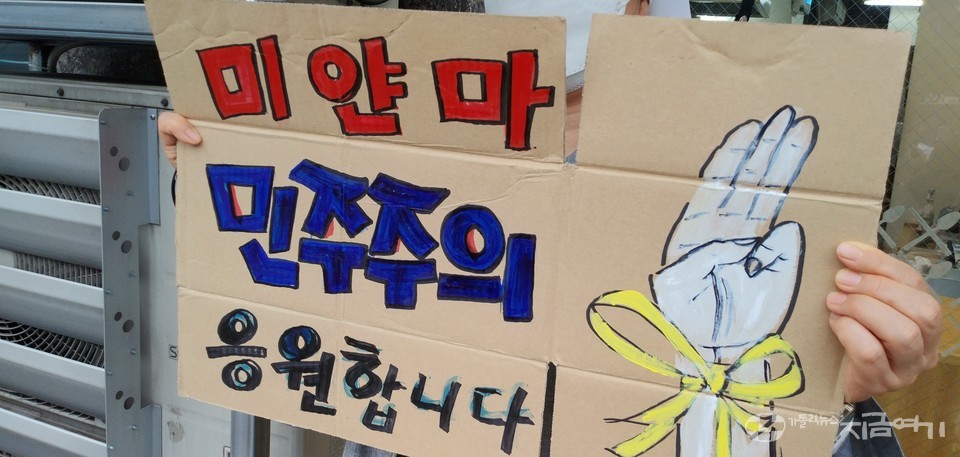 미얀마
민주주의
응원합니다
가톨릭뉴스
지금여기